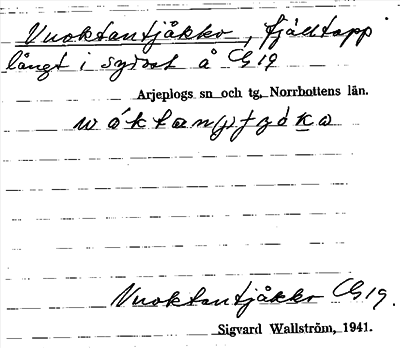 Vuoktantjåkko, fjälltopp
långt i sydväst å G 19
Arjeplogs sn och tg, Norrbottens län.
Vuoktantjåkko G 19.
Sigvard Wallström, 1941.